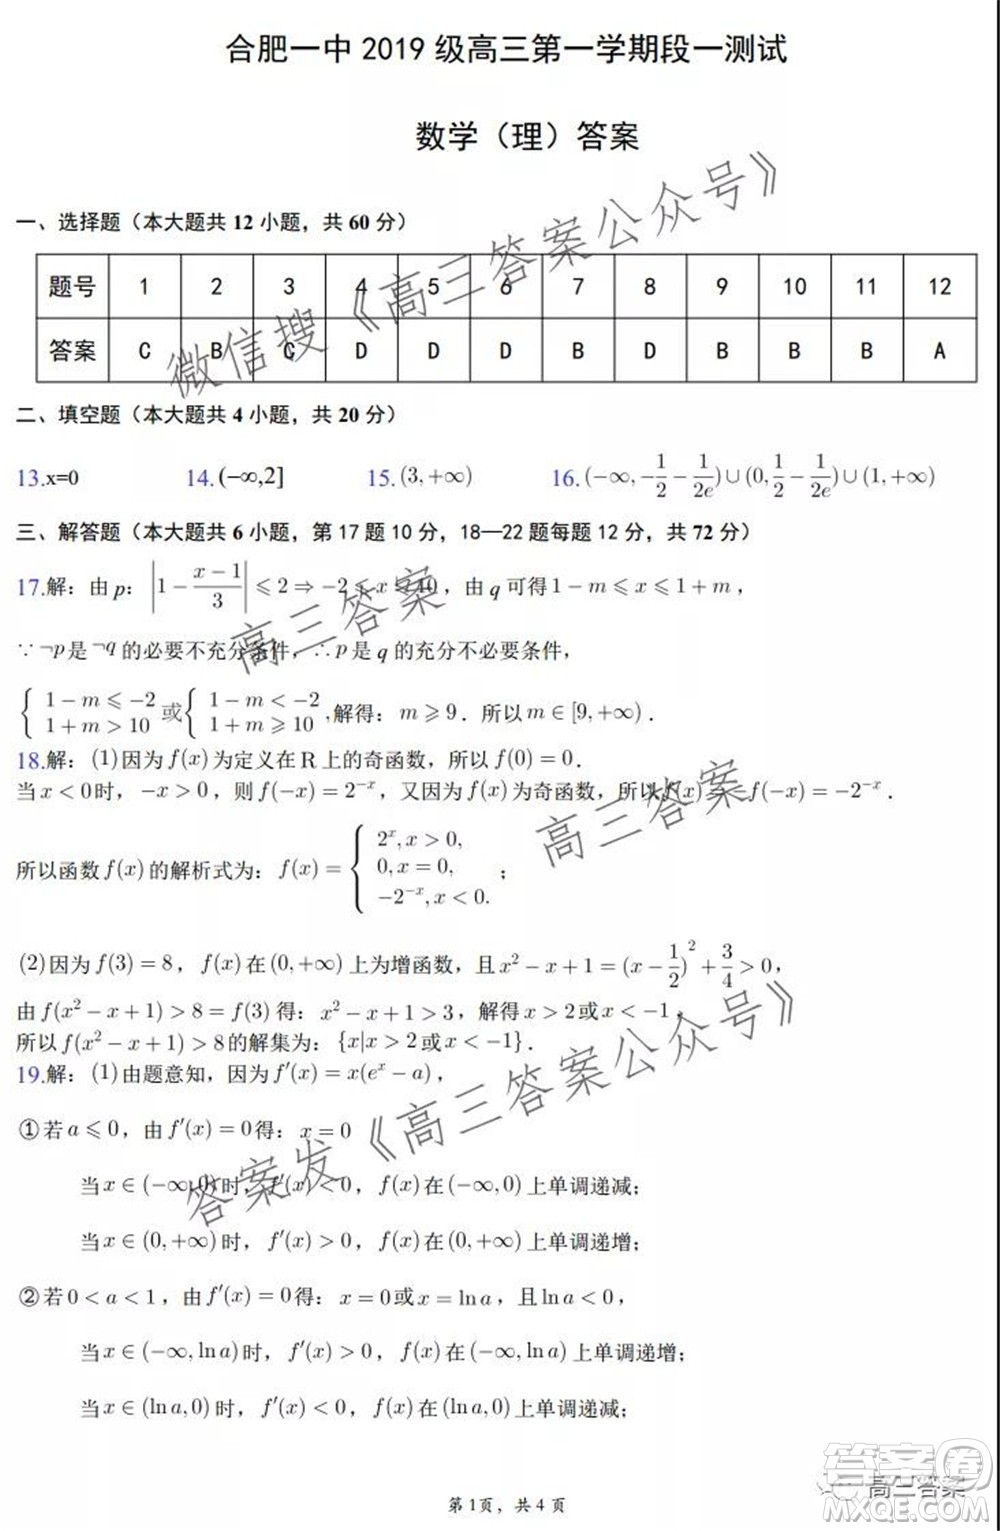 合肥一中 2019 级高三第一学期段一测试
数学（理）答案
一、选择题（本大题共 12 小题，共 60 分）
题号 1 2 3 4 5 6 7 8 9 10 11 12
答案 C B C D D D B D B B B A
二、填空题（本大题共 4 小题，共 20 分）
13.x=0 14.(−∞,2] 15.(3,+∞) 16.(−∞,−1/2−1/2e)∪(0,1/2−1/2e)∪(1,+∞)
三、解答题（本大题共 6 小题，第 17 题 10 分，18—22 题每题 12 分，共 72 分）
17.解：由 p：|1−(x−1)/3|⩽2⇒−2⩽x⩽10，由 q 可得 1−m⩽x⩽1+m，
∵¬p是¬q的必要不充分条件，∴p是q的充分不必要条件，
{1−m⩽−2 1+m>10 或{1−m<−2 1+m⩾10 ,解得：m⩾9．所以 m∈[9,+∞)．
18.解：(1)因为f(x)为定义在R上的奇函数，所以f(0)=0．
当x<0时，−x>0，则f(−x)=2^{−x}，又因为f(x)为奇函数，所以f(x)=−f(−x)=−2^{−x}．
所以函数f(x)的解析式为：f(x)={2^x,x>0, 0,x=0, −2^{−x},x<0. ；
(2)因为f(3)=8，f(x)在(0,+∞)上为增函数，且x²−x+1=(x−1/2)²+3/4>0，
由f(x²−x+1)>8=f(3)得：x²−x+1>3，解得x>2或x<−1，
所以f(x²−x+1)>8的解集为：{x|x>2或x<−1}．
19.解：(1)由题意知，因为f′(x)=x(e^x−a)，
①若a⩽0，由f′(x)=0得：x=0
当x∈(−∞,0)时，f′(x)<0，f(x)在(−∞,0)上单调递减；
当x∈(0,+∞)时，f′(x)>0，f(x)在(0,+∞)上单调递增；
②若0<a<1，由f′(x)=0得：x=0或x=lna，且lna<0，
当x∈(−∞,lna)时，f′(x)>0，f(x)在(−∞,lna)上单调递增；
当x∈(lna,0)时，f′(x)<0，f(x)在(lna,0)上单调递减；
第 1页，共 4 页
微信搜《高三答案公众号》
高三答案
高三答案
答案发《高三答案公众号》
高三答案
答案圈
MXQE.COM